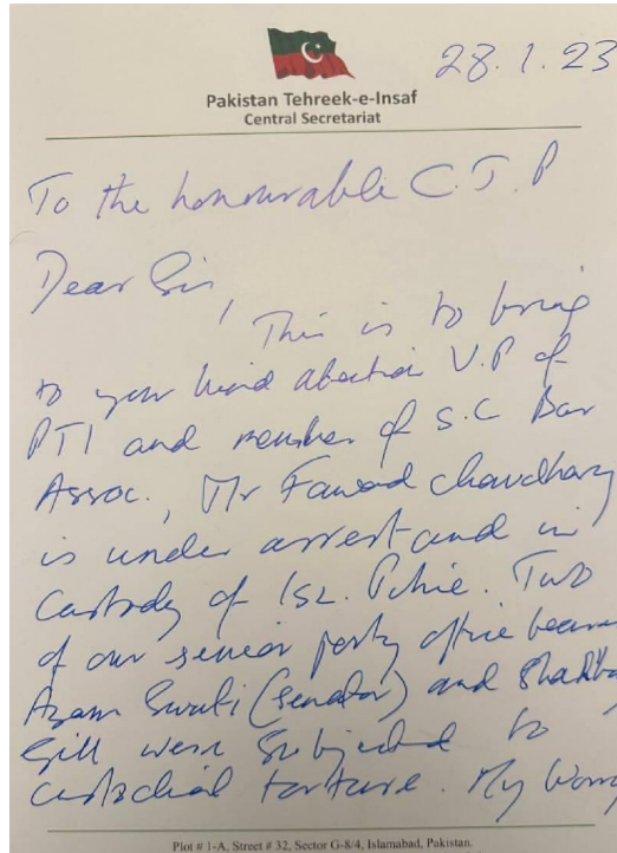 28.1.23
Pakistan Tehreek-e-Insaf
Central Secretariat
To the honourable C.J.P
Dear Sir,
This is to bring
to your kind attention V.P of
PTI and member of S.C Bar
Assoc., Mr Fawad Chaudhary
is under arrest and in
custody of Isl. Police. Two
of our senior party office bearers
Azam Swati (senator) and Shahbaz
Gill were subjected to
custodial torture. My worry
Plot # 1-A, Street # 32, Sector G-8/4, Islamabad, Pakistan.